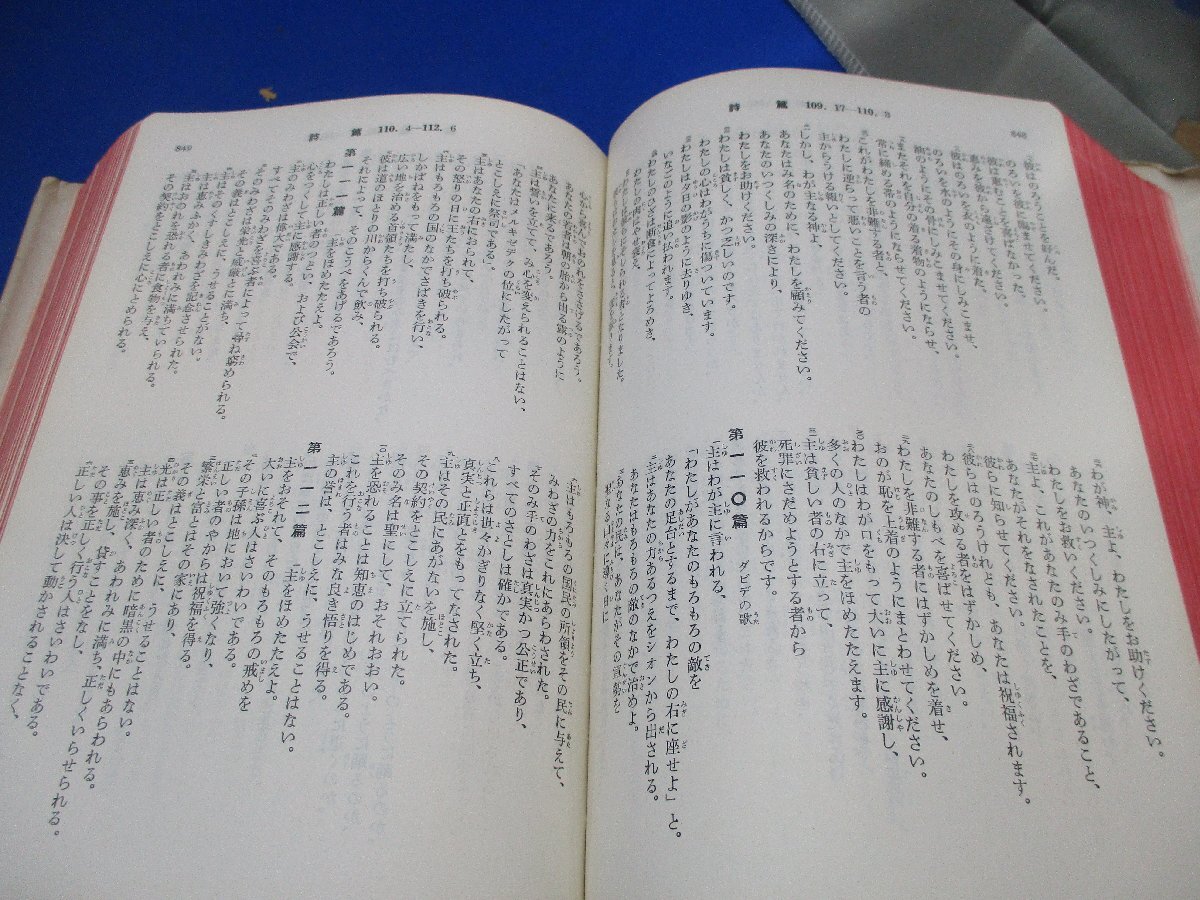 848
詩 篇 109. 17—110. 3
彼はのろうことを好んだ。
のろいを彼に臨ませてください。
彼は恵むことを喜ばなかった。
恵みを彼から遠ざけてください。
彼はのろいを衣のように着た。
のろいを水のようにその身にしみこませ、
油のようにその骨にしみこませてください。
またそれを自分の着る着物のようにならせ、
常に締める帯のようにならせてください。
これがわたしを非難する者と、
わたしに逆らって悪いことを言う者の
主からうける報いとしてください。
しかし、わが主なる神よ、
あなたはみ名のために、わたしを顧みてください。
あなたのいつくしみの深きにより、
わたしをお助けください。
わたしは貧しく、かつ乏しいのです。
わたしの心はわがうちに傷ついています。
わたしは夕日の影のように去りゆき、
いなごのように追い払われます。
わたしのひざは断食によってよろめき、
わたしの肉はやせ衰え、
わが神、主よ、わたしをお助けください。
あなたのいつくしみにしたがって、
わたしをお救いください。
主よ、これがあなたのみ手のわざであること、
あなたがそれをなされたことを、
彼らに知らせてください。
彼らはのろうけれども、あなたは祝福されます。
わたしを攻める者をはずかしめ、
あなたのしもべを喜ばせてください。
わたしを非難する者にはずかしめを着せ、
おのが恥を上着のようにまとわせてください。
わたしはわが口をもって大いに主に感謝し、
多くの人のなかで主をほめたたえます。
主は貧しい者の右に立って、
死罪にさだめようとする者から
彼を救われるからです。
第一一〇篇
ダビデの歌
主はわが主に言われる、
「わたしがあなたのもろもろの敵を
あなたの足台とするまで、わたしの右に座せよ」と。
主はあなたの力あるつえをシオンから出される。
あなたはもろもろの敵のなかで治めよ。
849
詩 篇 110. 4—112. 6
心から喜んでおのれをささげるであろう。
あなたの若者は朝の胎から出る露のように
あなたに来るであろう。
主は誓いを立てて、み心を変えられることはない、
「あなたはメルキゼデクの位にしたがって
とこしえに祭司である」。
主はあなたの右におられて、
その怒りの日に王たちを打ち破られる。
主はもろもろの国のなかでさばきを行い、
しかばねをもって満たし、
広い地を治める首領たちを打ち破られる。
彼は道のほとりの川からくんで飲み、
それによって、そのこうべをあげるであろう。
第一一一篇
主をほめたたえよ。
わたしは正しい者のつどい、および公会で、
心をつくして主に感謝する。
主のみわざは偉大である。
すべてそのみわざを喜ぶ者によって尋ね窮められる。
そのみわざは栄光と威厳とに満ち、
その義はとこしえに、うせることがない。
主はそのくすしきみわざを記念させられた。
主は恵みふかく、あわれみに満ちていられる。
主はおのれを恐れる者に食物を与え、
その契約をとこしえに心にとめられる。
主はもろもろの国民の所領をその民に与えて、
みわざの力をこれにあらわされた。
そのみ手のわざは真実かつ公正であり、
すべてのさとしは確かである。
これらは世々かぎりなく堅く立ち、
真実と正直とをもってなされた。
主はその民にあがないを施し、
その契約をとこしえに立てられた。
そのみ名は聖にして、おそれおおい。
主を恐れることは知恵のはじめである。
これを行う者はみな良き悟りを得る。
主の誉は、とこしえに、うせることはない。
第一一二篇
主をほめたたえよ。
主をおそれて、そのもろもろの戒めを
大いに喜ぶ人はさいわいである。
その子孫は地において強くなり、
正しい者のやからは祝福を得る。
繁栄と富とはその家にあり、
その義はとこしえに、うせることはない。
光は正しい者のために暗黒の中にもあらわれる。
主は恵み深く、あわれみに満ち、正しくいらせられる。
恵みを施し、貸すことをなし、
その事を正しく行う人はさいわいである。
正しい人は決して動かされることなく、